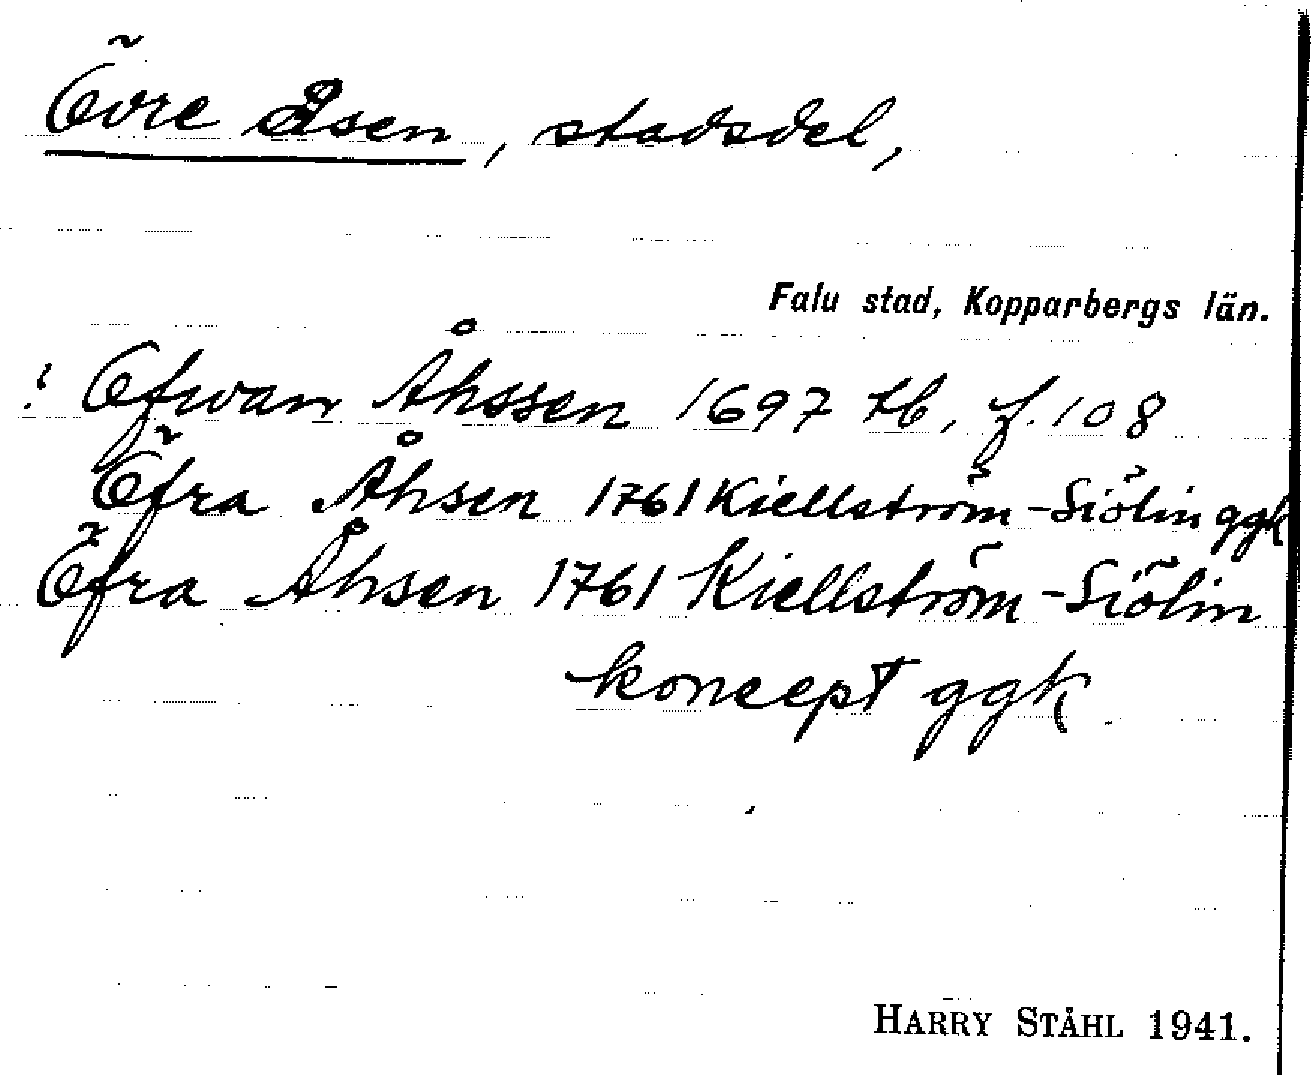 Övre Åsen, stadsdel,
Falu stad, Kopparbergs län.
! Ofwan Åhssen 1697 tb, f. 108
Öfra Åhsen 1761 Kiellström-Siölin ggk
Öfra Åhsen 1761 Kiellström-Siölin
koncept ggk.
HARRY STÅHL 1941.